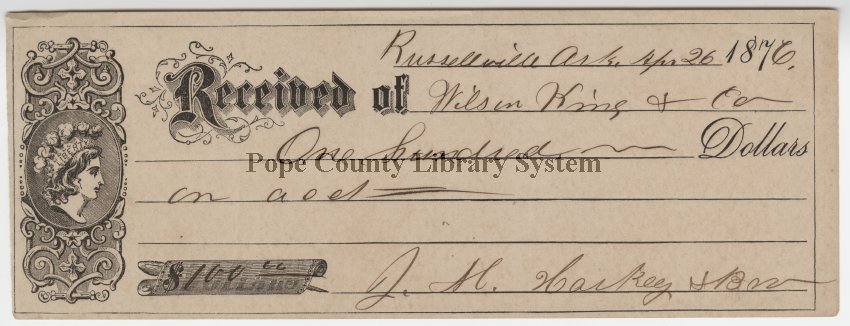 Russellville Ark. Apr 26 1876.
Received of Wilson King & Co
One hundred Dollars
Pope County Library System
on acct
$100 00
J. M. Harkey & Bro